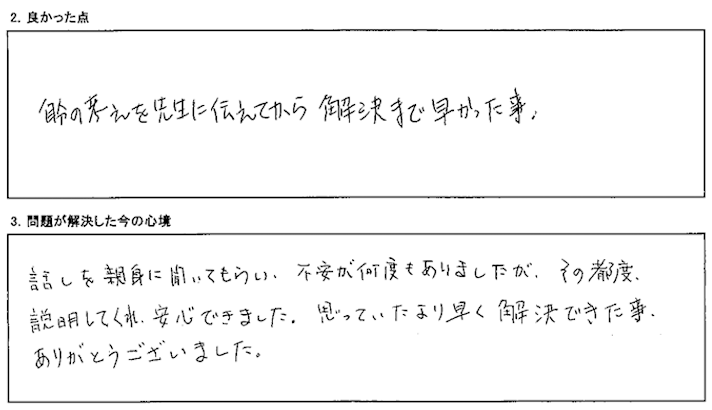 2. 良かった点
自分の考えを先生に伝えてから 解決まで早かった事。
3. 問題が解決した今の心境
話しを親身に聞いてもらい、不安が何度もありましたが、その都度、
説明してくれ、安心できました。思っていたより早く解決できた事、
ありがとうございました。